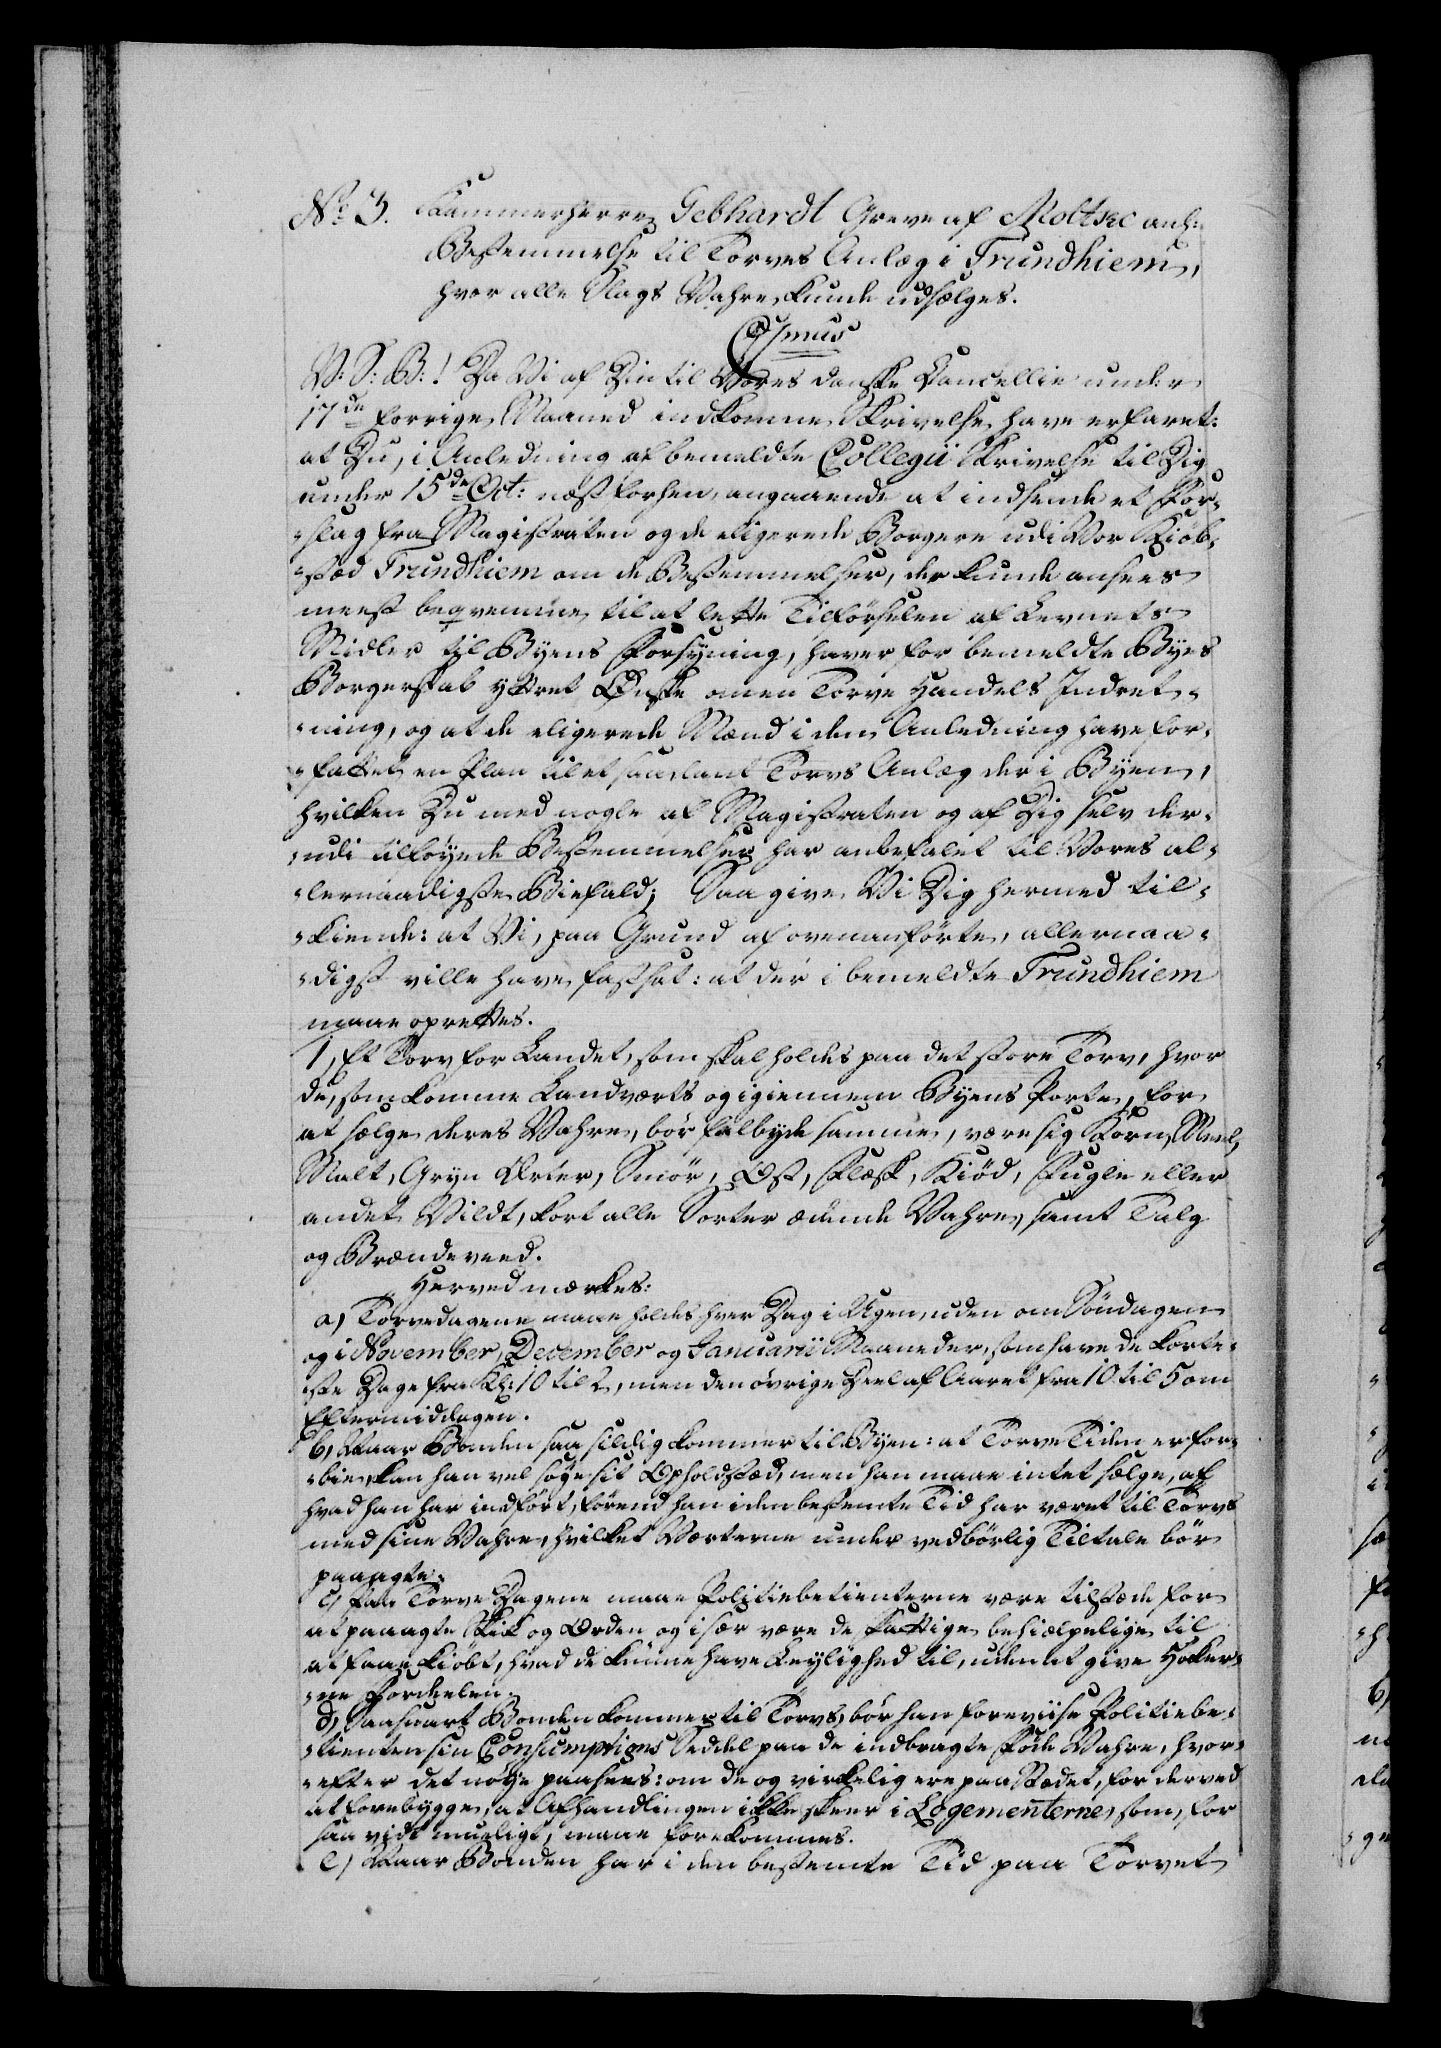 No 3. Kammerherre Gebhardt Greve af Moltke anh:
Bestemmelse til Torves Anlæg i Trundhiem,
hvor alle Slags Vahre kunde udsælges.
C7mus
V: S: B:! Da Vi af Din til Vores danske Cancellie under
17de forrige Maaned indkomne Skrivelse have erfaret:
at Du, i Anledning af bemeldte Collegii Skrivelse til Dig
under 15de Oct: næst forhen, angaaende at indsende et For-
-slag fra Magistraten og de eligerede Borgere udi Vor Kiøb-
-stæd Trundhiem om de Bestemmelser, der kunde ansees
meest beqvemme til at lette Tilførselen af Levnets
Midler til Byens Forsyning, haver for bemeldte Byes
Borgerskab yttret Ønske om en Torve Handels Indret-
-ning, og at de eligerede Mænd i den Anledning have for-
-fattet en Plan til et saadant Torvs Anlæg der i Byen,
hvilken Du med nogle af Magistraten og af Dig selv der-
-udi tilføyede Bestemmelser har anbefalet til Vores al-
-lernaadigste Biefald; Saa give Vi Dig hermed til-
-kiende: at Vi, paa Grund af ovenanførte, allernaa-
-digst ville have fastsat: at der i bemeldte Trundhiem
maae oprettes.
1, Et Torv for Landet, som skal holdes paa det store Torv, hvor
de, som komme Landværts og igiennem Byens Porte, for
at sælge deres Vahre, bør falbyde samme, være sig Korn, Meel,
Malt, Gryn Erter, Smør, Ost, Flæsk, Kiød, Fugle eller
andet Vildt, kort alle Sorter ædende Vahre, samt Talg
og Brændeveed.
Herved mærkes:
a, Torvedagene maae holdes hver Dag i Ugen, uden om Søndagen
og i November, December og Januarii Maaneder, som have de korte-
-ste Dage fra Kl: 10 til 2, men den øvrige Deel af Aaret fra 10 til 5 om
Eftermiddagen.
b, Naar Bonden saa sildig kommer til Byen: at Torve Tiden er for-
-bie, kan han vel søge sit Opholdstæd, men han maae intet sælge, af
hvad han har indført, førend han i den bestemte Tid har været til Torvs
med sine Vahre, hvilket Værterne under vedbørlig Tiltale bør
paaagte.
c, Paa Torve Dagene maae Politiebetienterne være tilstæde for
at paaagte Skik og Orden og især være de Fattige behielpelige til
at faae kiøbt, hvad de kunne have Leylighed til, uden at give Høker-
-ne Fordeelen.
d, Saasnart Bonden kommer til Torvs, bør han foreviise Politiebe-
-tienten sin Consumptions Seddel paa de indbragte Føde Vahre, hvor-
-efter det nøye paasees: om de og virkelig ere paa Stædet, for derved
at forebygge, at Afhandlingen ikke skeer i Logementerne, som, for
saa vidt mueligt, maae forekommes.
e, Naar Bonden har i den bestemte Tid paa Torvet